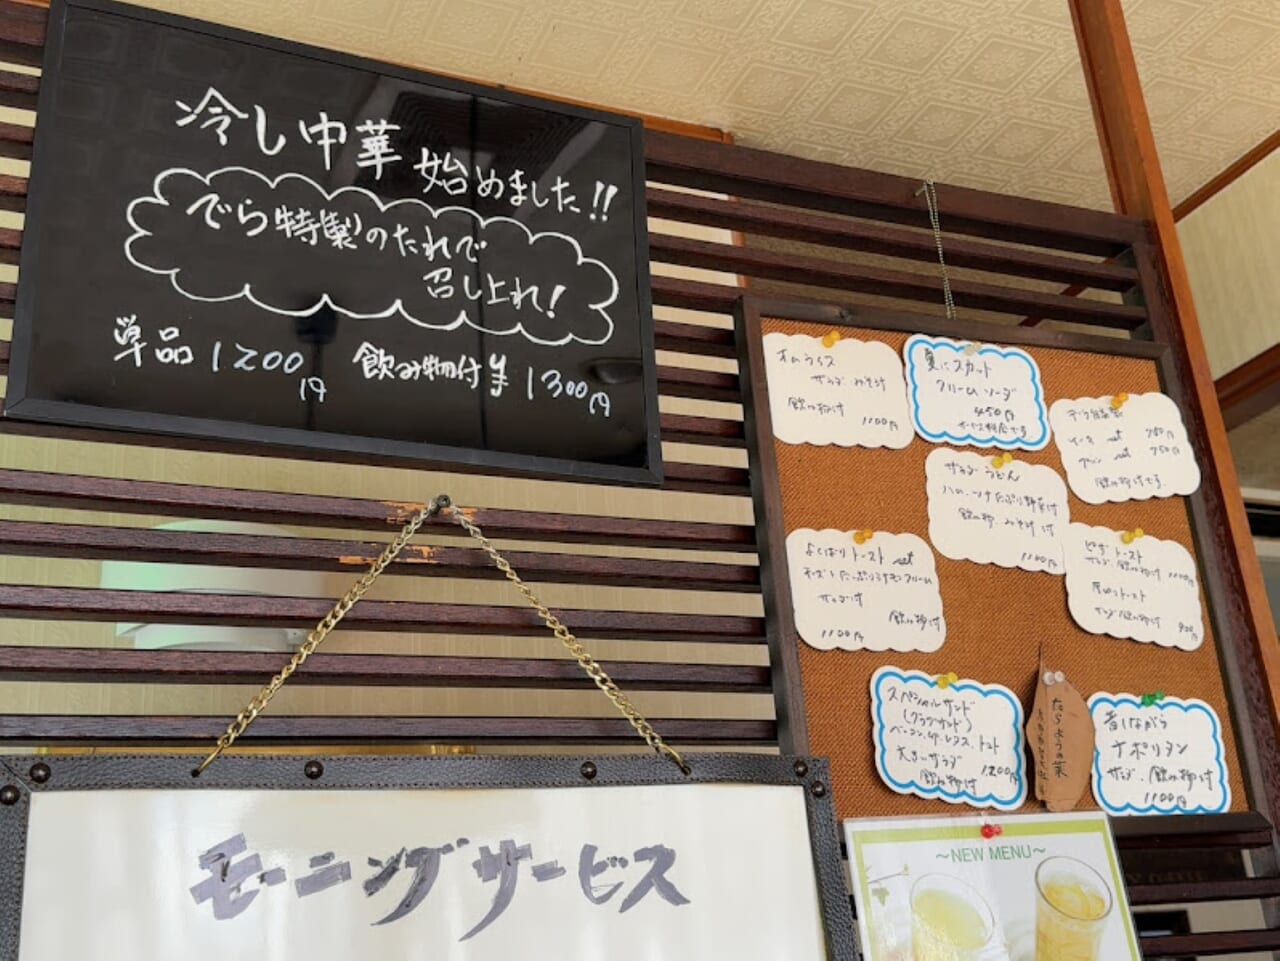 冷し中華 始めました!!
でら特製のたれで
召し上れ!
単品1200円 飲み物付き1300円
オムライス
サラダ みそ汁
飲み物付
1100円
夏にスカット
クリームソーダ
450円
set 750円
set 750円
飲み物付です。
サラダうどん
ハム、ツナたっぷり野菜付
飲み物、みそ汁付
1100円
よくばりトースト set
サラダ付
飲み物付
1100円
ピザトースト
サラダ、飲み物付 1100円
厚切トースト
サラダ 飲み物付 900円
スペシャルサンド
(クラブサンド)
ベーコン、卵、レタス、トマト
大きいサラダ
飲み物付 1200円
たらようの葉
昔しながら
ナポリタン
サラダ、飲み物付
1100円
モーニングサービス
~NEW MENU~